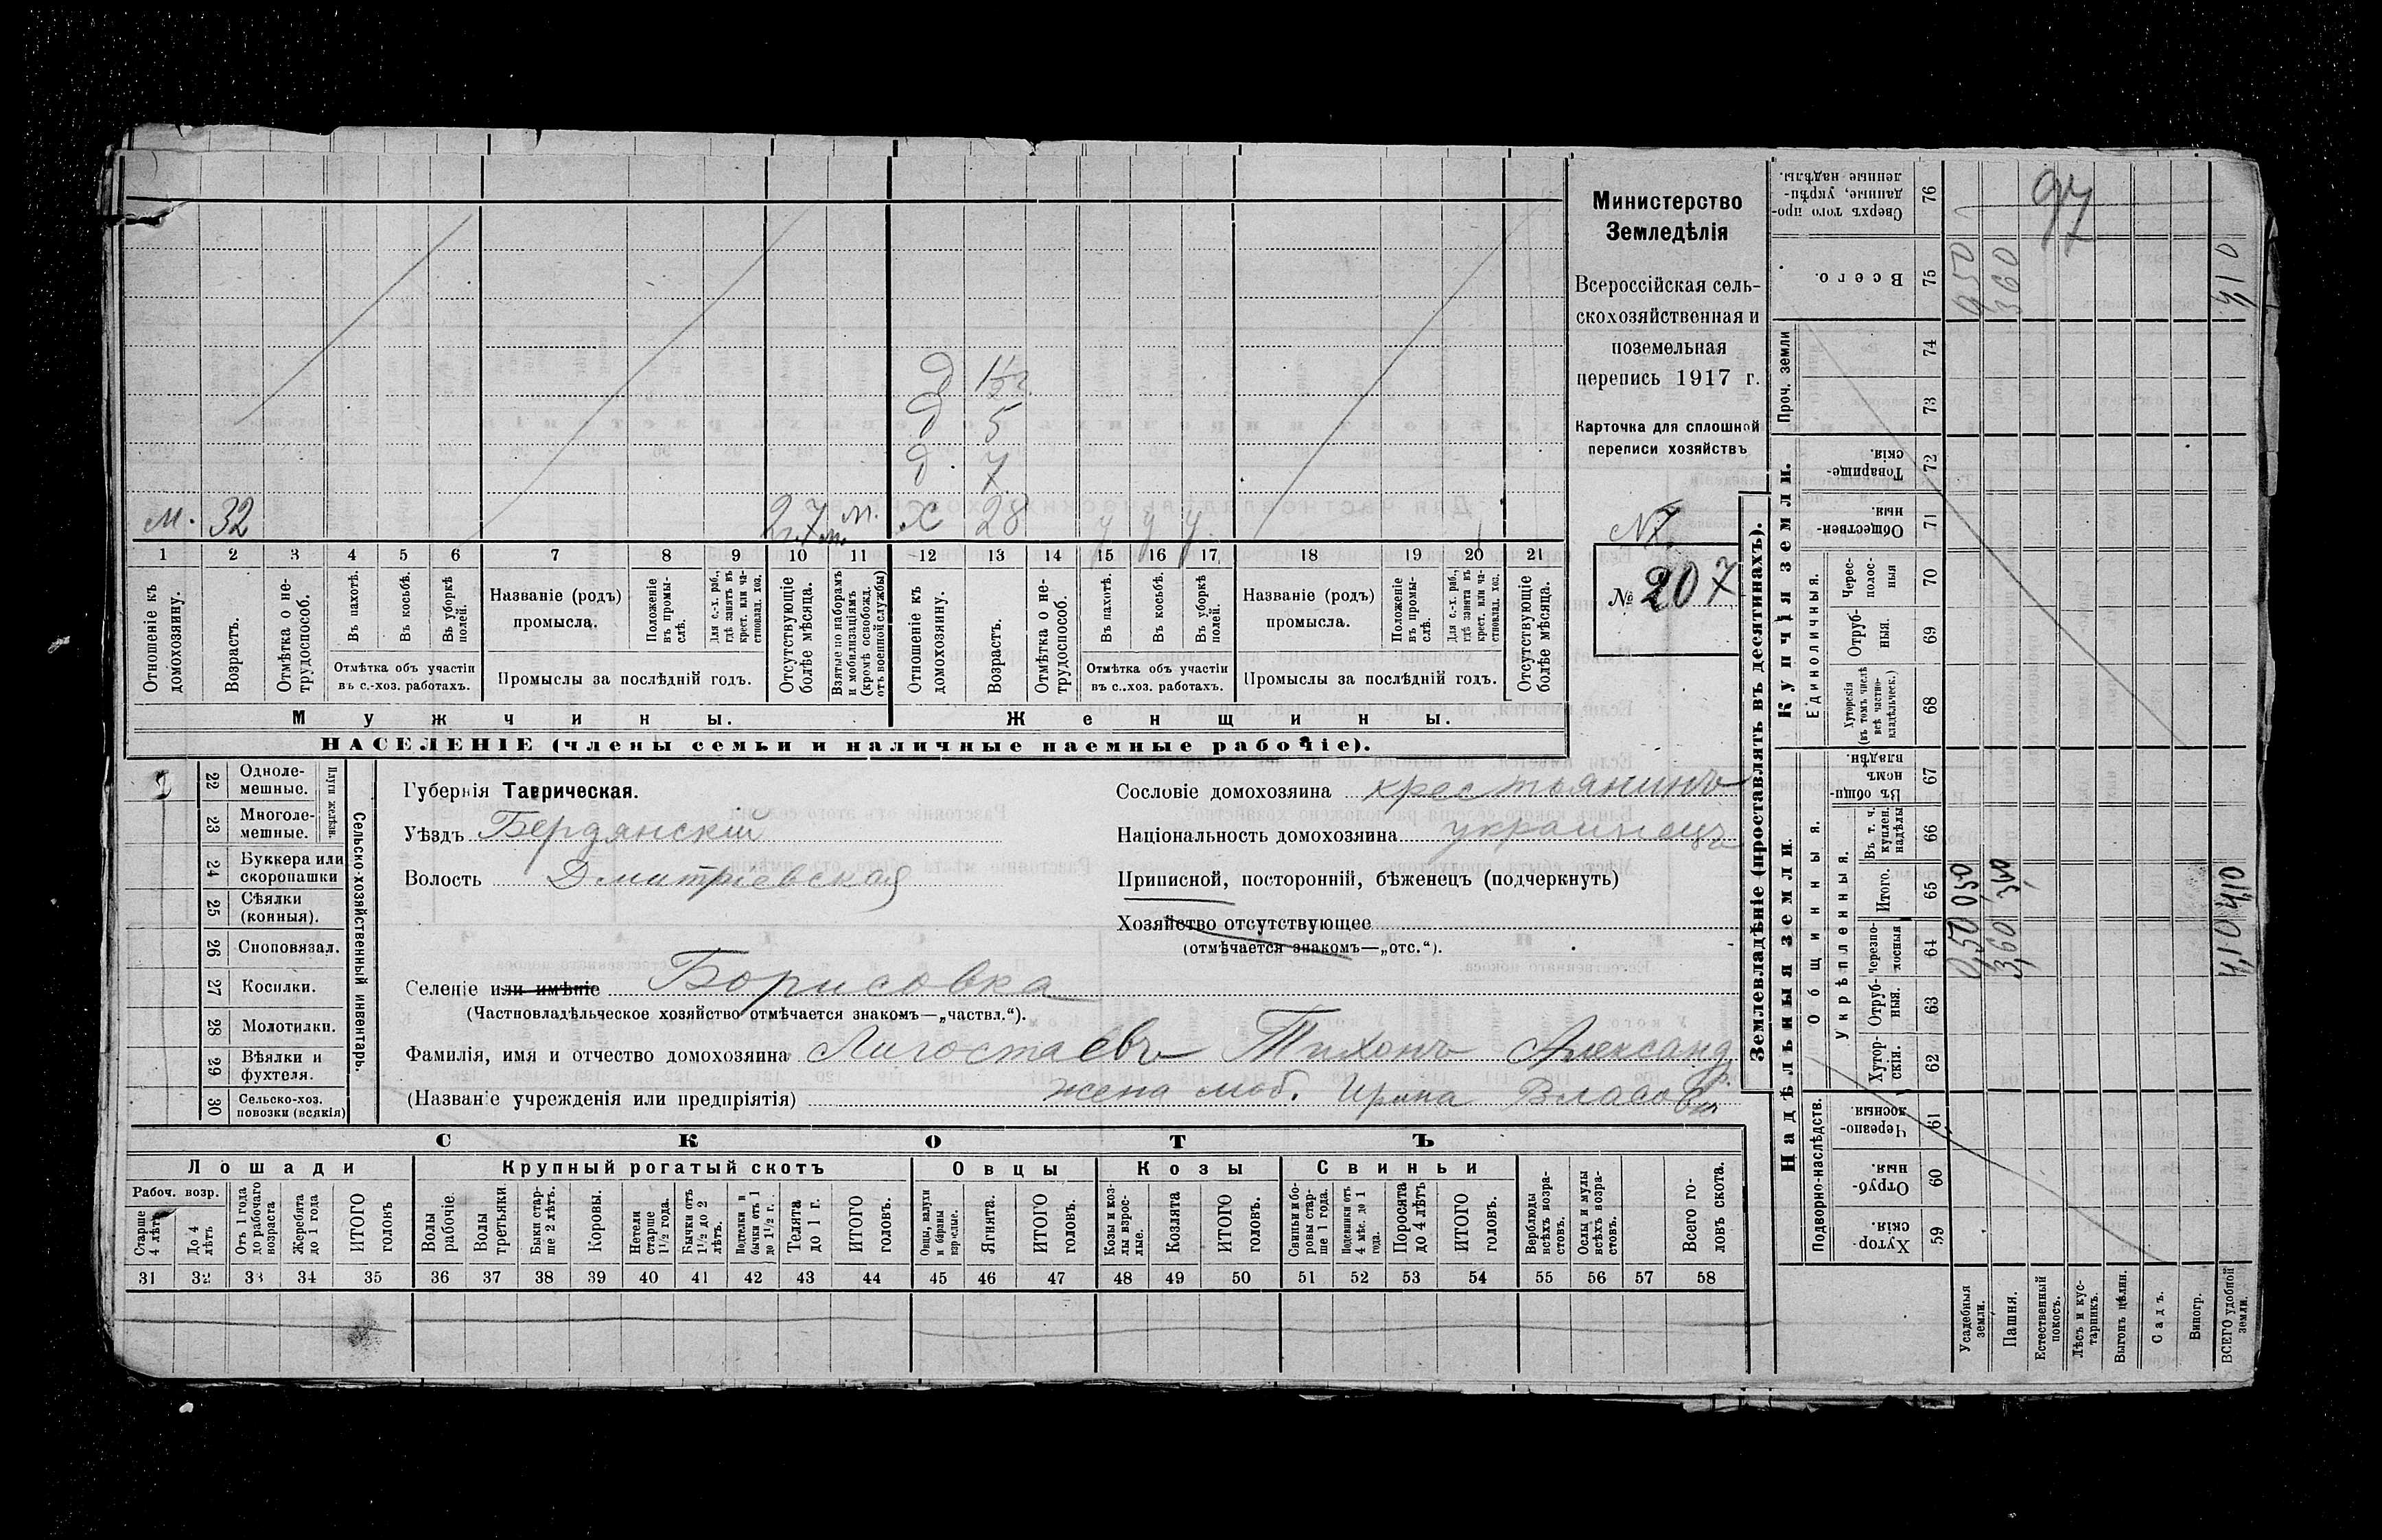 Министерство
Земледѣлія
Всероссійская сель-
скохозяйственная и
поземельная
перепись 1917 г.
Карточка для сплошной
переписи хозяйствъ
№ 207
97
Д 1½
Д 5
Д. 7
м. 32 2 г. 7 м. м. Х 28 у у у
1 2 3 4 5 6 7 8 9 10 11 12 13 14 15 16 17 18 19 20 21
Отношеніе къ домохозяину.
Возрастъ.
Отмѣтка о не-трудоспособ.
Въ пахотѣ.
Въ косьбѣ.
Въ уборкѣ полей.
Отмѣтка объ участіи
въ с.-хоз. работахъ.
Названіе (родъ)
промысла.
Положеніе въ промы-слѣ.
Для с.-х. раб., гдѣ занятъ въ крест. или ча-стновлад. хоз.
Промыслы за послѣдній годъ.
Отсутствующіе болѣе мѣсяца.
Взятые по наборамъ и мобилизаціямъ (кромѣ освобожд. отъ военной службы)
Отношеніе къ домохозяину.
Возрастъ.
Отмѣтка о не-трудоспособ.
Въ пахотѣ.
Въ косьбѣ.
Въ уборкѣ полей.
Отмѣтка объ участіи
въ с.-хоз. работахъ.
Названіе (родъ)
промысла.
Положеніе въ промы-слѣ.
Для с.-х. раб., гдѣ занята въ крест. или ча-стновлад. хоз.
Промыслы за послѣдній годъ.
Отсутствующіе болѣе мѣсяца.
Мужчины.
Женщины.
НАСЕЛЕНІЕ (члены семьи и наличные наемные рабочіе).
22 Однолемешные.
23 Многолемешные.
Плуги желѣзн.
24 Буккера или скоропашки
25 Сѣялки (конныя).
26 Сноповязал.
27 Косилки.
28 Молотилки.
29 Вѣялки и фухтеля.
30 Сельско-хоз. повозки (всякія)
Сельско-хозяйственный инвентарь.
Губернія Таврическая.
Уѣздъ Бердянскій
Волость Дмитріевская
Сословіе домохозяина крестьянинъ
Національность домохозяина украинецъ
Приписной, посторонній, бѣженецъ (подчеркнуть)
Хозяйство отсутствующее
(отмѣчается знакомъ—„отс.“).
Селеніе или имѣніе Борисовка
(Частновладѣльческое хозяйство отмѣчается знакомъ—„частвл.“).
Фамилія, имя и отчество домохозяина Лигостаевъ Тихонъ Александр.
(Названіе учрежденія или предпріятія) жена моб. Ирина Власовн
СКОТЪ
Лошади
Крупный рогатый скотъ
Овцы
Козы
Свиньи
Рабоч. возр.
Старше 4 лѣтъ
До 4 лѣтъ
Отъ 1 года до рабочаго возраста
Жеребята до 1 года
ИТОГО головъ
Волы рабочіе.
Волы третьяки.
Быки стар-ше 2 лѣтъ.
Коровы.
Нетели старше 1½ года.
Бычки отъ 1½ до 2 лѣтъ.
Подтелки и бычки отъ 1 до 1½ г.
Телята до 1 г.
ИТОГО головъ.
Овцы, валухи и бараны взрослые.
Ягнята.
ИТОГО головъ.
Козы и коз-лы взрос-лые.
Козлята
ИТОГО головъ.
Свиньи и бо-ровы стар-ше 1 года.
Подсвинки отъ 4 мѣс. до 1 года.
Поросята до 4 лѣтъ
ИТОГО головъ.
Верблюды всѣхъ возра-стовъ.
Ослы и мулы всѣхъ возра-стовъ.
Всего го-ловъ скота.
31 32 33 34 35 36 37 38 39 40 41 42 43 44 45 46 47 48 49 50 51 52 53 54 55 56 57 58
Землевладѣніе (проставлять въ десятинахъ).
Купчія земли.
Надѣльныя земли.
Сверхъ того про-данные, укрѣп-ленные надѣлы. 76
Всего. 75 0,50 3,60 4,10
Проч. земли 74
73
Товарище-скія. 72
Обществен-ныя. 71
Единоличныя.
Черес-полос-ныя 70
Отруб-ныя. 69
Хуторскія (въ томъ числѣ всѣ частно-владѣльческ.) 68
Общинныя.
Въ общи-номъ владѣн. 67
Укрѣпленныя.
Въ т. ч. куплен. надѣлы 66
Итого. 65 0,50 3,60 4,10
Черезпо-лосныя 64 0,50 3,60 4,10
Отруб-ныя. 63
Хутор-скія. 62
Подворно-наслѣдств.
Черезпо-лосныя 61
Отруб-ныя. 60
Хутор-скія 59
Усадебныя земли.
Пашня.
Естественный покосъ.
Лѣсъ и кус-тарникъ.
Выгонъ цѣлин.
Садъ.
Виногр.
ВСЕГО удобной земли.